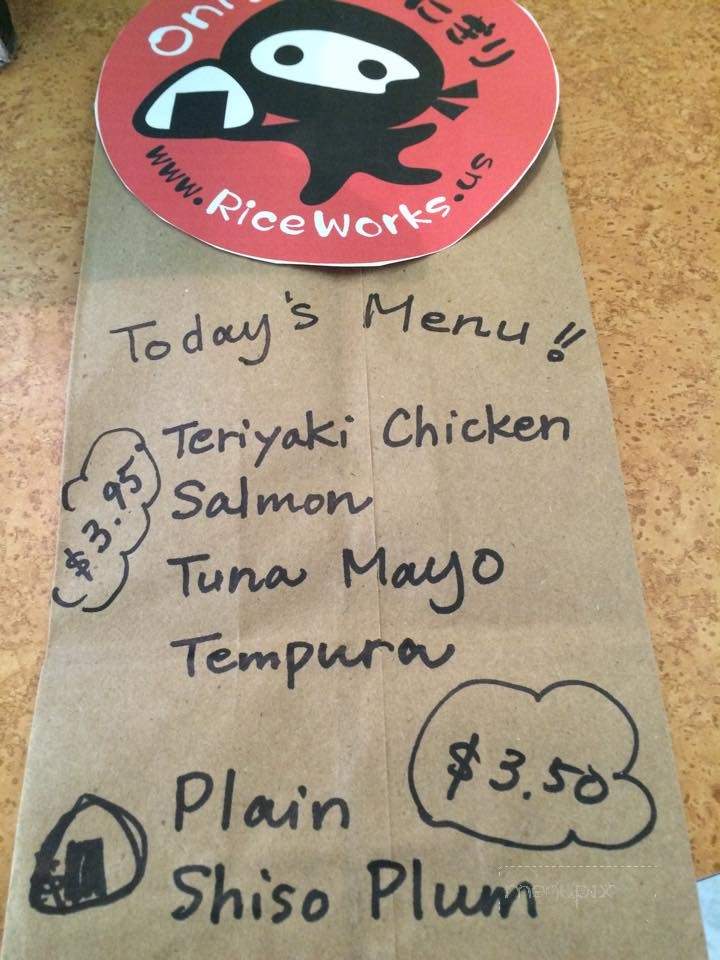 にぎり
www.RiceWorks.us
Today's Menu!!
Teriyaki Chicken
$3.95
Salmon
Tuna Mayo
Tempura
$3.50
Plain
Shiso Plum
menupix